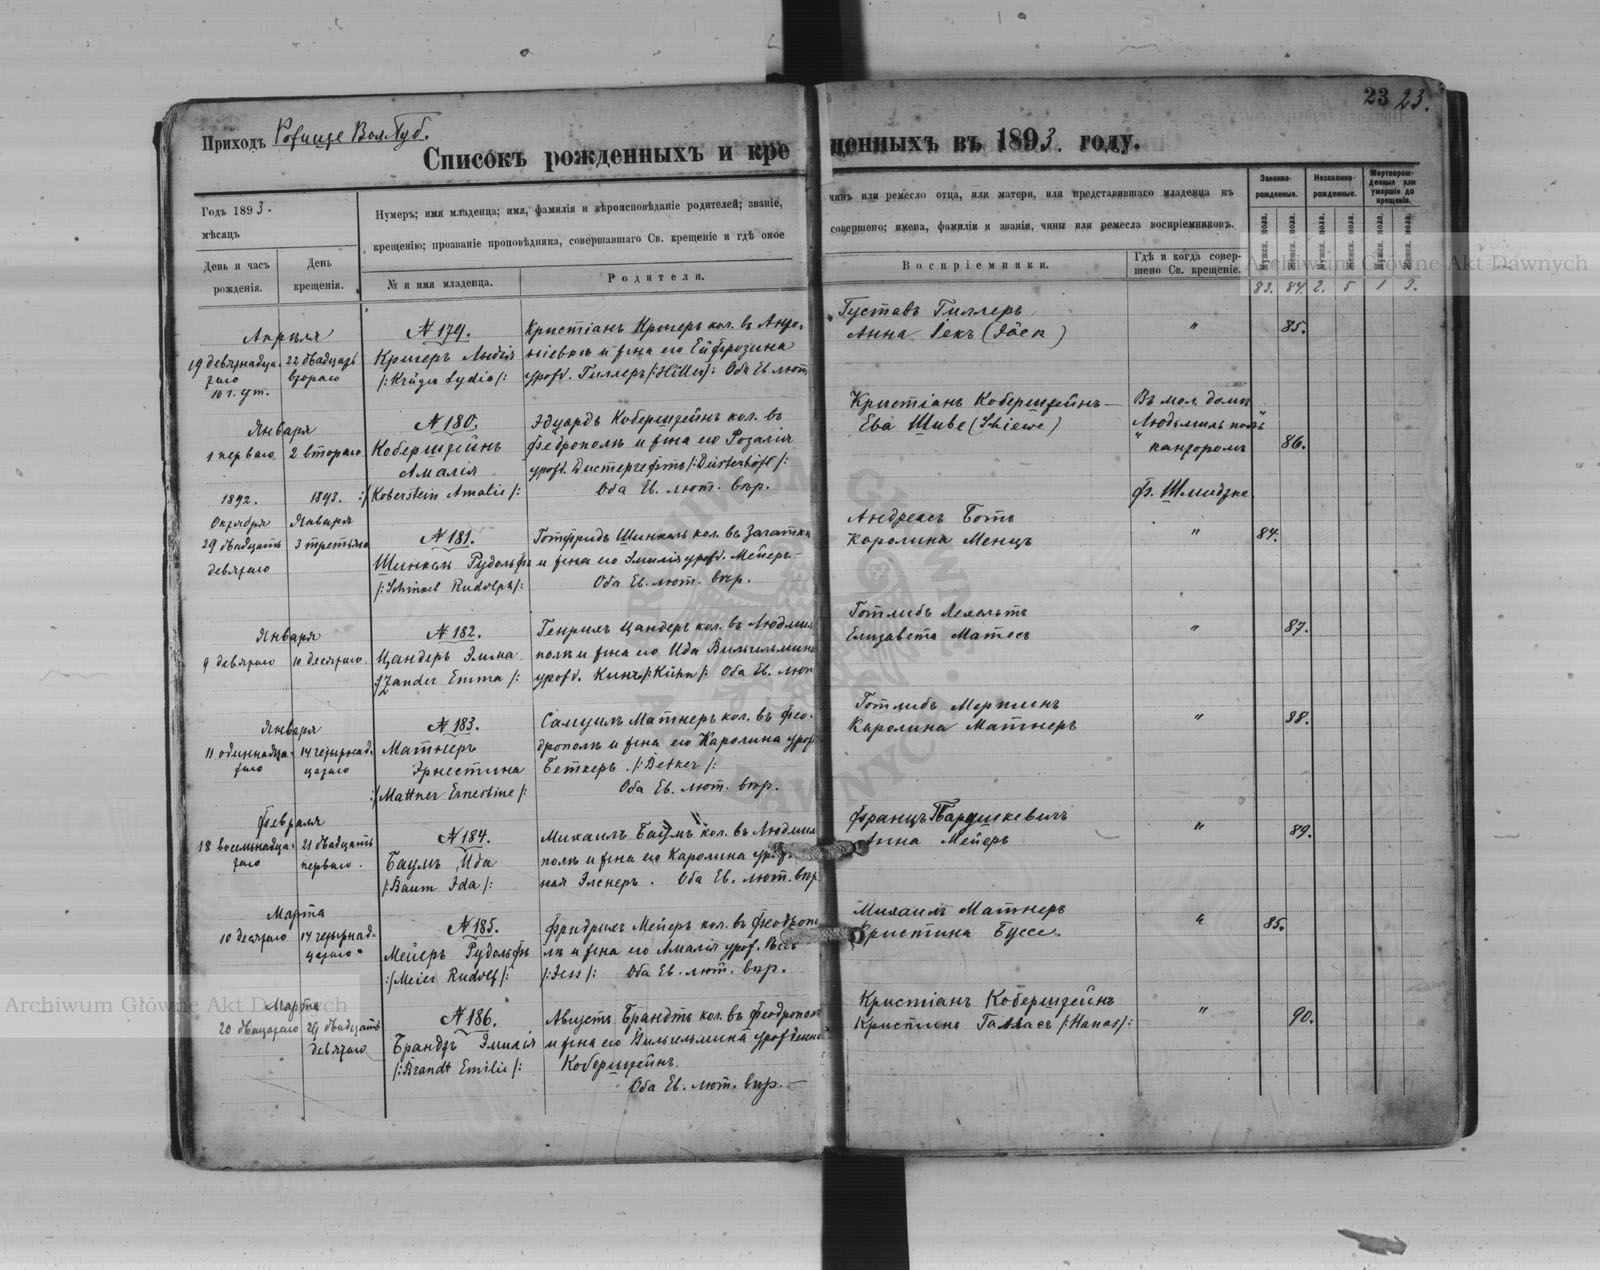 23 23.
Приходъ Рожище Вол. Губ.
Списокъ рожденныхъ и кре щенныхъ въ 1893. году.
Годъ 1893.
мѣсяцъ
День и часъ рожденія.
День крещенія.
Нумеръ; имя младенца; имя, фамилія и вѣроисповѣданіе родителей; званіе, чинъ или ремесло отца, или матери, или представившаго младенца къ
крещенію; прозваніе проповѣдника, совершавшаго Св. крещеніе и гдѣ оное совершено; имена, фамиліи и званія, чины или ремесла воспріемниковъ.
№ и имя младенца.
Родители.
Воспріемники.
Гдѣ и когда совершено Св. крещеніе.
Законно-рожденные.
Незаконно-рожденные.
Мертворожденные или умершіе до крещенія.
Мужск. пола.
Женск. пола.
Мужск. пола.
Женск. пола.
Мужск. пола.
Женск. пола.
83. 84. 2. 5 1 3.
Апрѣля
19 девятнадца-
таго
10 ч. ут.
22 двадцать
втораго
№ 179.
Кригеръ Лидія
/: Krüger Lydia :/
Кристіанъ Кригеръ кол. въ Андро-
ніевкѣ и жена его Ейфрозина
урожд. Гиллеръ /: Hiller :/ Оба Ев. лют
Густавъ Гиллеръ
Анна Іекъ (Jäck)
"
85.
Января
1 перваго
2 втораго
№ 180.
Коберштейнъ
Амалія
/: Koberstein Amalie :/
Эдуардъ Коберштейнъ кол. въ
Федрополѣ и жена его Розалія
урожд. Дистергефтъ /: Düsterhöft :/
Оба Ев. лют. вѣр.
Кристіанъ Коберштейнъ
Ева Шиве (Schiewe)
Въ мол. домѣ
Людмильполь
канторомъ
Ф. Шмидтке
86.
1892.
Октября
29 двадцать
девятаго
1893.
Января
3 третьяго
№ 181.
Шинкель Рудольфъ
/: Schinkel Rudolph :/
Готфридъ Шинкель кол. въ Загатка
и жена его Эмилія урожд. Мейеръ
Оба Ев. лют. вѣр.
Андреасъ Ботъ
Каролина Менцъ
"
84.
Января
9 девятаго
10 десятаго
№ 182.
Цандеръ Эмма
/: Zander Emma :/
Генрихъ Цандеръ кол. въ Людмил
полѣ и жена его Ида Вильгельмина
урожд. Кинъ /: Kühn :/ Оба Ев. лют
Готлибъ Лехельтъ
Елизавета Матесъ
"
87.
Января
11 одиннадца-
таго
14 четырнад-
цатаго
№ 183.
Матнеръ
Эрнестина
/: Mattner Ernestine :/
Самуилъ Матнеръ кол. въ Фео-
дрополѣ и жена его Каролина урож
Беткеръ. /: Betker :/
Оба Ев. лют. вѣр.
Готлибъ Мертинъ
Каролина Матнеръ
"
88.
Февраля
18 восемьнадца-
таго
21 двадцать
перваго
№ 184.
Баумъ Ида
/: Baum Ida :/
Михаилъ Баумъ кол. въ Людмил
полѣ и жена его Каролина урожд
ная Элснеръ. Оба Ев. лют. вѣр
Францъ Бартушкевичъ
Анна Мейеръ
"
89.
Марта
10 десятаго
14 четырнад-
цатаго
№ 185.
Мейеръ Рудольфъ
/: Meier Rudolf :/
Фридрихъ Мейеръ кол. въ Феодропо
лѣ и жена его Амалія урож.
/: Jess :/ Оба Ев. лют. вѣр.
Михаилъ Матнеръ
Кристина Буссе.
"
85.
Марта
20 двадцатаго
29 двадцать
девятаго
№ 186.
Брандтъ Эмилія
/: Brandt Emilie :/
Августъ Брандтъ кол. въ Феодрополѣ
и жена его Вильгельмина урожденна
Коберштейнъ.
Оба Ев. лют. вѣр.
Кристіанъ Коберштейнъ
Кристина Ганасъ /: Hanas :/
"
90.
Archiwum Główne Akt Dawnych
Archiwum Główne Akt Dawnych